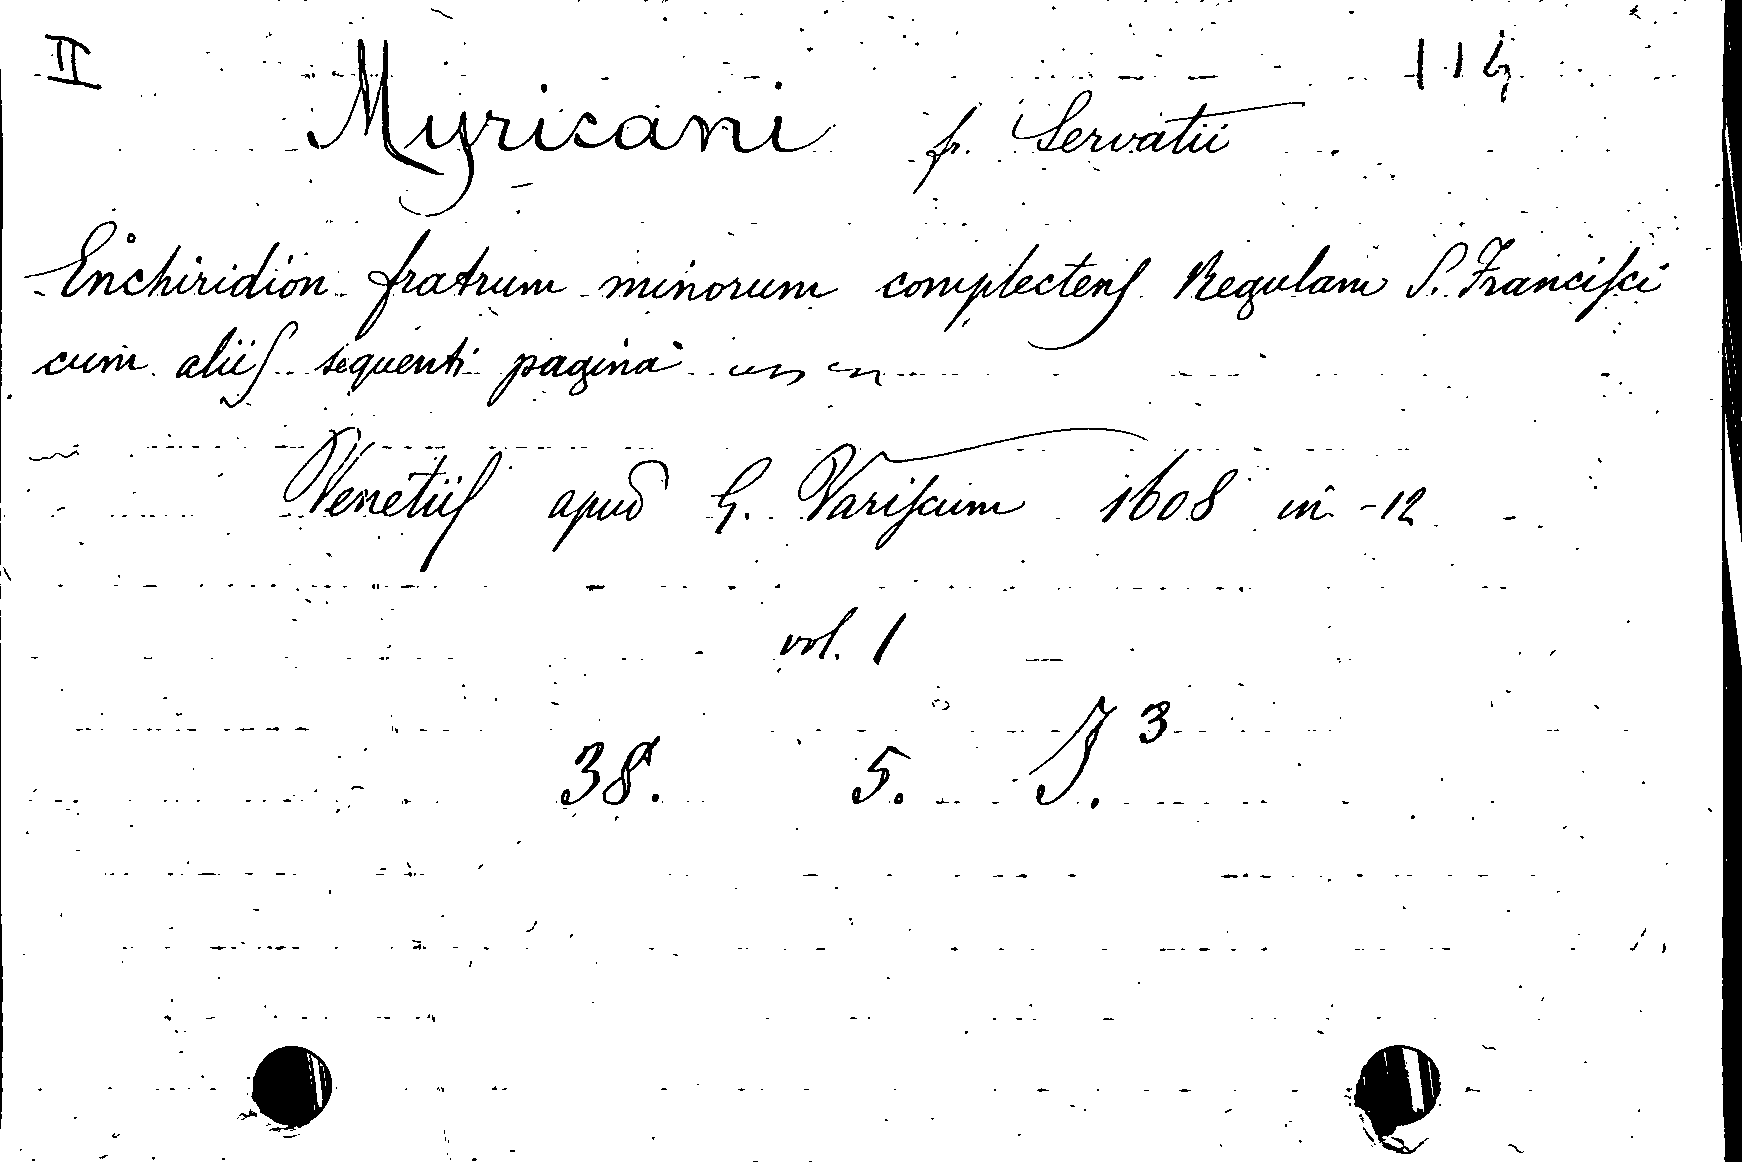 II
Myricani fr. Servatii
Enchiridion fratrum minorum complectens Regulam S. Francisci
cum aliis sequenti pagina
Venetiis apud G. Variscum 1608 in -12
vol. 1
38. 5. J.3